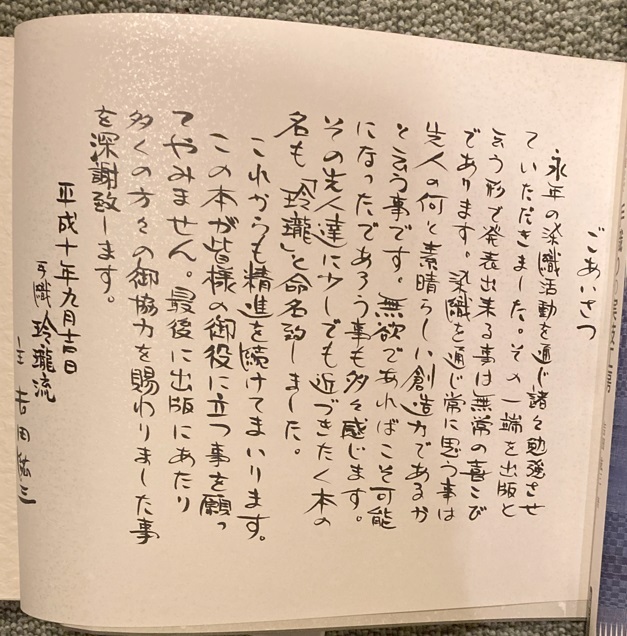 ごあいさつ
永年の染織活動を通じ諸々勉強させ
ていただきました。その一端を出版と
云う形で発表出来る事は無常の喜こび
であります。染織を通じ常に思う事は
先人の何と素晴らしい創造力であるか
と云う事です。無欲であればこそ可能
になったであろう事も多々感じます。
その先人達に少しでも近づきたく本の
名も「玲瓏」と命名致しました。
これからも精進を続けてまいります。
この本が皆様の御役に立つ事を願っ
てやみません。最後に出版にあたり
多くの方々の御協力を賜わりました事
を深謝致します。
平成十年九月吉日
手織 玲瓏流
吉田紘三